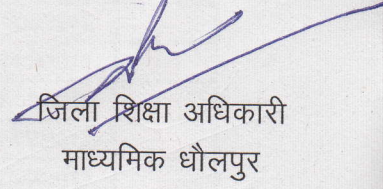 जिला शिक्षा अधिकारी
माध्यमिक धौलपुर